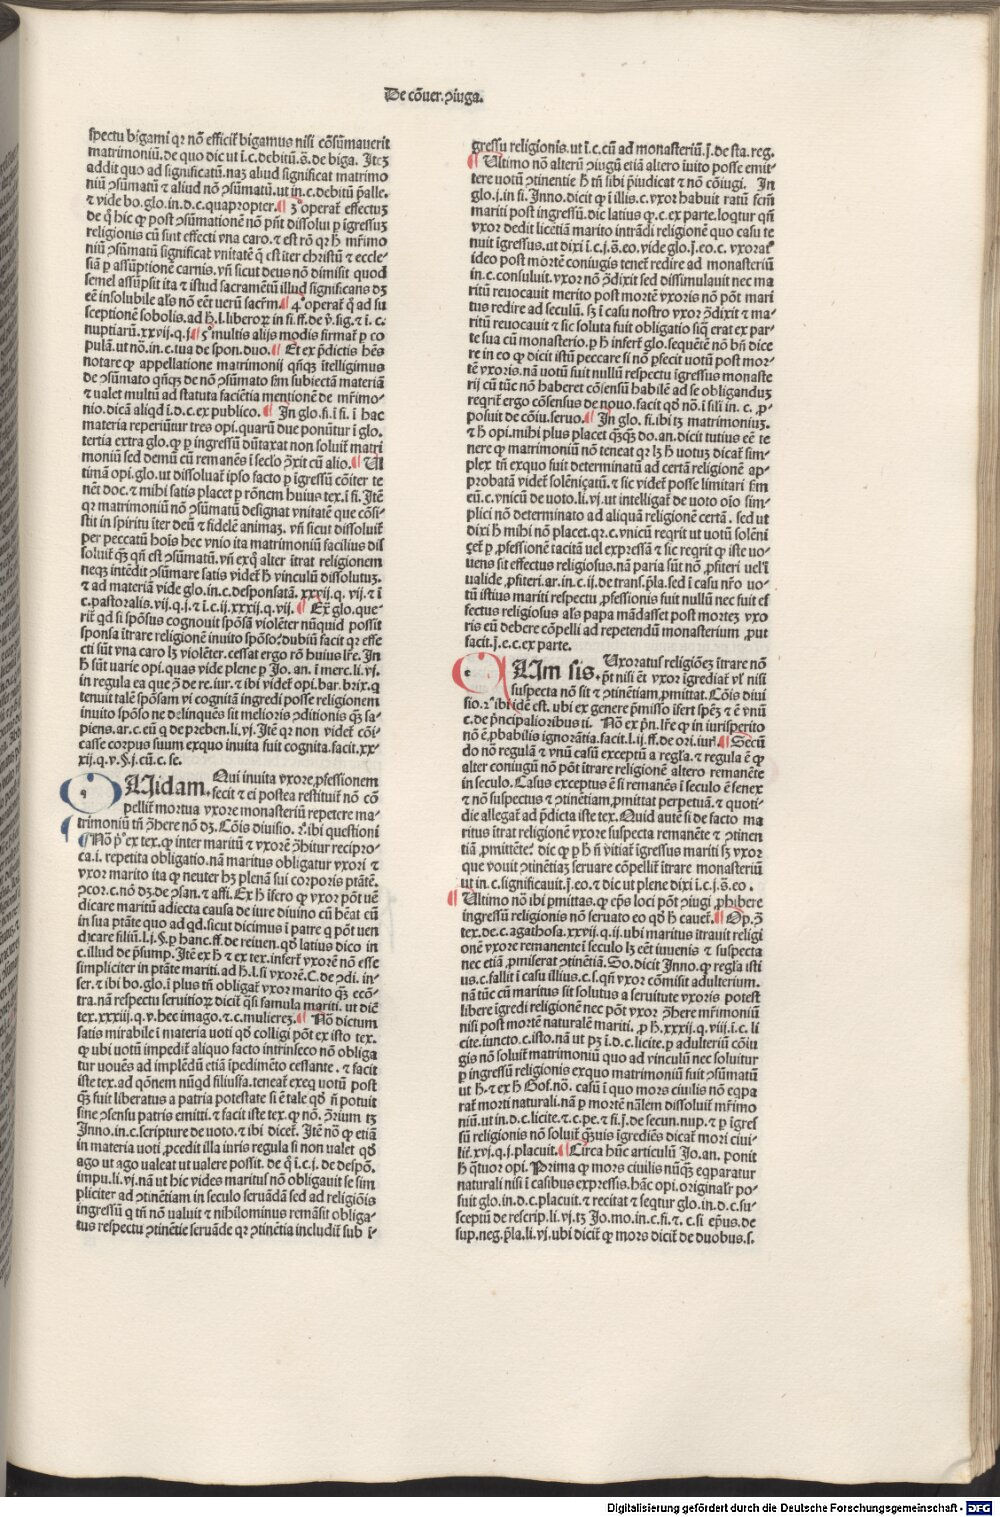 De cõuer. ꝯiuga.
spectu bigami qꝛ nõ efficit̃ bigamus nisi cõsũmauerit
matrimoniũ. de quo dic ut ĩ.c. debitũ. s̃. de biga. Itẽꝫ
addit quo ad significatũ. naꝫ aliud significat matrimo
niũ ꝯsũmatũ ⁊ aliud nõ ꝯsũmatũ. ut in.c. debitũ p̃alle.
⁊ vide bo. glo. in.d.c. quapropter. ¶ 3° operat̃ effectuꝫ
de q̃ hic ꝙ post ꝯsũmationẽ nõ pñt dissolui ꝑ ĩgressuꝫ
religionis cũ sint effecti vna caro. ⁊ est rõ qꝛ h̃ mr̃imo
niũ ꝯsũmatũ significat vnitatẽ q̃ est ĩter christũ ⁊ eccle-
siã ꝑ assũptionẽ carnis. vñ sicut deus nõ dimisit quod
semel assũpsit ita ⁊ istud sacramẽtũ illud significans dꝫ
eẽ insolubile als̃ nõ eẽt uerũ sacr̃m. ¶ 4° operat̃ q̃ ad su
sceptionẽ sobolis. ad h̃.l. liberoꝝ in fi. ff. de v̾. sig. ⁊ ĩ.c.
nuptiarũ. xxvii.q.j. ¶ 5° multis alijs modis firmat̃ ꝑ co
pulã. ut nõ. in.c. tua de spon. duo. ¶ Et ex p̃dictis hẽs
notare ꝙ appellatione matrimonii qñqꝫ ĩtelligimus
de ꝯsũmato qñqꝫ de nõ ꝯsũmato s̃m subiectã materiã
⁊ valet multũ ad statuta faciẽtia mentionẽ de mr̃imo-
nio. dicã aliqd̃ ĩ.d.c. ex publico. ¶ In glo. fi. ĩ fi. ĩ hac
materia reperiũtur tres opi. quarũ due ponũtur ĩ glo.
tertia extra glo. ꝙ ꝑ ingressũ dũtaxat non soluit̃ matri
moniũ sed demũ cũ remanẽs ĩ seclo ꝯ̃xit cũ alio. ¶ Ul
timã opi. glo. ut dissoluat̃ ipso facto ꝑ ĩgressũ cõiter te
nẽt doc. ⁊ mihi satis placet ꝑ rõnem huius tex. ĩ fi. Itẽ
qꝛ matrimoniũ nõ ꝯsũmatũ designat vnitatẽ que cõsi-
stit in spiritu ĩter deũ ⁊ fidelẽ animaꝫ. vñ sicut dissoluit̃
per peccatũ hois̃ hec vnio ita matrimoniũ facilius dis
soluit̃ qꝫ̃ qñ est ꝯsũmatũ. vñ exq̃ alter ĩtrat religionem
neqꝫ intẽdit ꝯsũmare satis videt̃ h̃ vinculũ dissolutuꝫ.
⁊ ad materiã vide glo. in.c. desponsatã. xxvij.q. vij. ⁊ ĩ
c. pastoralis. vij.q.j. ⁊ ĩ.c.ij. xxxij.q.vij. ¶ Ex̃ glo. que-
rit̃ qd̃ si spõsus cognouit spõsã violẽter nũquid possit
sponsa ĩtrare religionẽ inuito spõso? dubiũ facit qꝛ effe
cti sũt vna caro lꝫ violẽter. cessat ergo rõ huius lr̃e. In
h̃ sũt uarie opi. quas vide plene ꝑ Jo. an. ĩ merc. li. vj.
in regula ea que ꝫ de re. iur. ⁊ ibi videt̃ opi. bar. brix. q
tenuit talẽ spõsam vi cognitã ingredi posse religionem
inuito spõso ne delinquẽs sit melioris ꝯditionis qꝫ̃ sa-
piens. ar.c. eũ q̃ de preben. li. vj. Itẽ qꝛ non videt̃ cõi-
casse corpus suum exquo inuita fuit cognita. facit. xx-
xij.q.v.§.j. cũ.c. se.
QUidam. Qui inuita vxore, ꝓfessionem
fecit ⁊ ei postea restituit̃ nõ cõ
pellit̃ mortua vxore monasteriũ repetere ma-
trimoniũ tñ ꝯ̃here nõ dꝫ. Cõis diuisio. 2ª. ibi questioni
¶ Nõ p̃° ex tex. ꝙ inter maritũ ⁊ vxorẽ ꝯ̃hitur recipro-
ca. i. repetita obligatio. nã maritus obligatur vxori ⁊
vxor marito ita ꝙ neuter hꝫ plenã sui corporis ptãtẽ.
ꝯcor.c. nõ dꝫ. de ꝯsan. ⁊ affi. Ex h̃ ĩfero ꝙ vxor põt uẽ
dicare maritũ adiecta causa de iure diuino cũ hẽat cũ
in sua ptãte quo ad qd̃. sicut dicimus ĩ patre q põt uen
dicare filiũ. l.j.§. ꝑ hanc. ff. de reiuen. qd̃ latius dico in
c. illud de p̃sump. Itẽ ex h̃ ⁊ ex tex. infert̃ vxorẽ nõ esse
simpliciter in ptãte mariti. ad h̃.l. si vxorẽ. C. de ꝯdi. in-
ser. ⁊ ibi bo. glo. ĩ plus tñ obligat̃ vxor marito qꝫ̃ ecõ-
tra. nã respectu seruitioꝝ dicit̃ qsi̾ famula mariti. ut dic̃
tex. xxxiij.q.v. hec imago. ⁊.c. muliereꝫ. ¶ Nõ dictum
satis mirabile ĩ materia uoti qd̃ colligi põt ex isto tex.
ꝙ ubi uotũ impedit̃ aliquo facto intrinseco nõ obliga
tur vouẽs ad implẽdũ etiã ĩpedimẽto cessante. ⁊ facit
iste tex. ad qõnem nũqd̃ filiusfa. teneat̃ exeq̃ uotũ post
qꝫ̃ fuit liberatus a patria potestate si ẽ tale qd̃ ñ potuit
sine ꝯsensu patris emitti. ⁊ facit iste tex. ꝙ nõ. ꝯ̃rium tꝫ
Inno. in.c. scripture de uoto. ⁊ ibi dicet̃. Itẽ nõ ꝙ etiã
in materia uoti, ꝓcedit illa iuris regula si non valet qd̃
ago ut ago ualeat ut ualere possit. de q̃ ĩ.c.j. de despõ.
impu. li. vj. nã ut hic vides maritus nõ obligauit se sim
pliciter ad ꝯtinẽtiam in seculo seruãdã sed ad religiõis
ingressũ q tñ nõ valuit ⁊ nihilominus remãsit obliga-
tus respectu ꝯtinẽtie seruãde qꝛ ꝯtinẽtia includit̃ sub ĩ-
gressu religionis. ut ĩ.c. cũ ad monasteriũ. j̃. de sta. reg.
¶ Ultimo nõ alterũ ꝯiugũ etiã altero ĩuito posse emit-
tere uotũ ꝯtinentie h̃ tñ sibi p̃iudicat ⁊ nõ cõiugi. In
glo. j. in fi. Inno. dicit ꝙ ĩ illis.c. vxor habuit ratũ fcm̃
mariti post ingressũ. dic latius ꝙ.c. ex parte. loqtur qñ
vxor dedit licẽtiã marito intrãdi religionẽ quo casu te
nuit ĩgressus. ut dixi ĩ.c.j. s̃. eo. vide glo. j̃. eo.c. vxorat̾
ideo post mortẽ coniugis tenet̃ redire ad monasteriũ
in.c. consuluit. vxor nõ ꝯ̃dixit sed dissimulauit nec ma
ritũ reuocauit merito post mortẽ vxoris nõ põt mari
tus redire ad seculũ. sꝫ ĩ casu nostro vxor ꝯ̃dixit ⁊ ma-
ritũ reuocauit ⁊ sic soluta fuit obligatio siq̃ erat ex par-
te sua cũ monasterio. ꝑ h̃ infert̃ glo. seq̃utẽ nõ bñ dice
re in eo ꝙ dicit istũ peccare si nõ ꝑfecit uotũ post mor-
tẽ vxoris. nã uotũ fuit nullũ respectu ĩgressus monaste
rij cũ tũc nõ haberet cõsensũ habilẽ ad se obliganduꝫ
reqrit̃ ergo cõsensus de nouo. facit qd̃ nõ. ĩ sili̾ in.c. ꝓ-
posuit de cõiu. seruo. ¶ In glo. fi. ibi tꝫ matrimoniuꝫ.
⁊ h̃ opi. mihi plus placet qꝫ̃qꝫ do. an. dicit tutius eẽ te
nere ꝙ matrimoniũ nõ teneat qꝛ lꝫ h̃ uotuꝫ dicat̃ sim-
plex tñ exquo fuit determinatũ ad certã religionẽ ap-
probatã videt̃ solẽniçatũ. ⁊ sic videt̃ posse limitari s̃m
eũ.c. vnicũ de uoto. li. vj. ut intelligat̃ de uoto oi̾o sim-
plici nõ determinato ad aliquã religionẽ certã. sed ut
dixi h̃ mihi nõ placet. qꝛ.c. vnicũ reqrit ut uotũ solẽni
çet̃ ꝑ ꝓfessionẽ tacitã uel expressã ⁊ sic reqrit ꝙ iste uo-
uens sit effectus religiosus. nã paria sũt nõ, ꝓfiteri uel ĩ
ualide, ꝓfiteri. ar. in.c. ij. de trans. p̃la. sed ĩ casu nr̃o uo-
tũ istius mariti respectu, ꝓfessionis fuit nullũ nec fuit ef
fectus religiosus als̃ papa mãdasset post morteꝫ vxo
ris eũ debere cõpelli ad repetendũ monasterium, ꝓut
facit. j̃. e.c. ex parte.
CUm sis. Uxoratus religiõeꝫ ĩtrare nõ
põt nisi eẽt vxor ĩgrediat̃ ul̃ nisi
suspecta nõ sit ⁊ ꝯtinẽtiam, ꝓmittat. Cõis diui
sio. 2ª ibi idẽ est. ubi ex genere p̃misso ĩfert spẽꝫ ⁊ ẽ vnũ
c. de p̃ncipalioribus ti. Nõ ex pñ. lr̃e ꝙ in iurisperito
nõ ẽ, ꝓbabilis ignorãtia. facit.l. ij. ff. de ori. iur̃. ¶ Secũ
do nõ regulã ⁊ vnũ casũ exceptũ a regl̃a. ⁊ regula ẽ ꝙ
alter coniugũ nõ põt ĩtrare religionẽ altero remanẽte
in seculo. Casus exceptus ẽ si remanẽs ĩ seculo ẽ senex
⁊ nõ suspectus ⁊ ꝯtinẽtiam, ꝓmittat perpetuã. ⁊ quoti-
die allegat̃ ad p̃dicta iste tex. Quid aut̃ẽ si de facto ma
ritus ĩtrat religionẽ vxore suspecta remanẽte ⁊ ꝯtinen
tiã, ꝓmittẽte: dic ꝙ ꝑ h̃ ñ vitiat̃ ĩgressus mariti sꝫ vxor
que vouit ꝯtinẽtiaꝫ seruare cõpellit̃ ĩtrare monasteriũ
ut in.c. significauit. j̃. eo. ⁊ dic ut plene dixi ĩ.c.j. s̃. eo.
¶ Ultimo nõ ibi pmittas. ꝙ ep̃s loci põt ꝯiugi, ꝓhibere
ingressũ religionis nõ seruato eo qd̃ h̃ cauet̃. ¶ Op. ꝯ̃
tex. de.c. agathosa. xxvij.q.ij. ubi maritus ĩtrauit religi
onẽ vxore remanente ĩ seculo lꝫ eẽt iuuenis ⁊ suspecta
nec etiã, ꝓmiserat ꝯtinẽtiã. So. dicit Inno. ꝙ regl̃a isti
us.c. fallit ĩ casu illius.c. s̃. qñ vxor cõmisit adulterium.
nã tũc cũ maritus sit solutus a seruitute vxoris potest
libere ĩgredi religionẽ nec põt vxor ꝯ̃here mr̃imoniũ
nisi post mortẽ naturalẽ mariti. ꝑ h̃. xxxij.q.viij. ĩ.c. li
cite. iuncto.c. isto. nã ut pꝫ ĩ.d.c. licite. ꝑ adulteriũ cõiu
gis nõ soluit̃ matrimoniũ quo ad vinculũ nec soluitur
ꝑ ingressũ religionis exquo matrimoniũ fuit ꝯsũmatũ
ut h̃. ⁊ ex h̃ Gof. nõ. casũ ĩ quo mors ciuilis nõ eqpa
rat̃ morti naturali. nã ꝑ mortẽ nãlem dissoluit̃ mr̃imo
niũ. ut in.d.c. licite. ⁊.c. pe. ⁊ fi. j̃. de secun. nup. ⁊ ꝑ ĩgres
sũ religionis nõ soluit̃ qꝫ̃uis ĩgrediẽs dicat̃ mori ciui-
lit̃. xvj.q.j. placuit. ¶ Circa hũc articulũ Jo. an. ponit
h̃ qtuor opi. Prima ꝙ mors ciuilis nũqꝫ̃ eqꝑaratur
naturali nisi ĩ casibus expressis. hãc opi. originalr̃ po-
suit glo. in.d.c. placuit. ⁊ recitat ⁊ seqtur glo. in.d.c. su-
sceptũ de rescrip. li. vj. tꝫ Jo. mo. in.c. fi. ⁊.c. si ep̃us. de
sup. neg. p̃la. li. vj. ubi dicit̃ ꝙ mors dicit̃ de duobus. s.
Digitalisierung gefördert durch die Deutsche Forschungsgemeinschaft - DFG